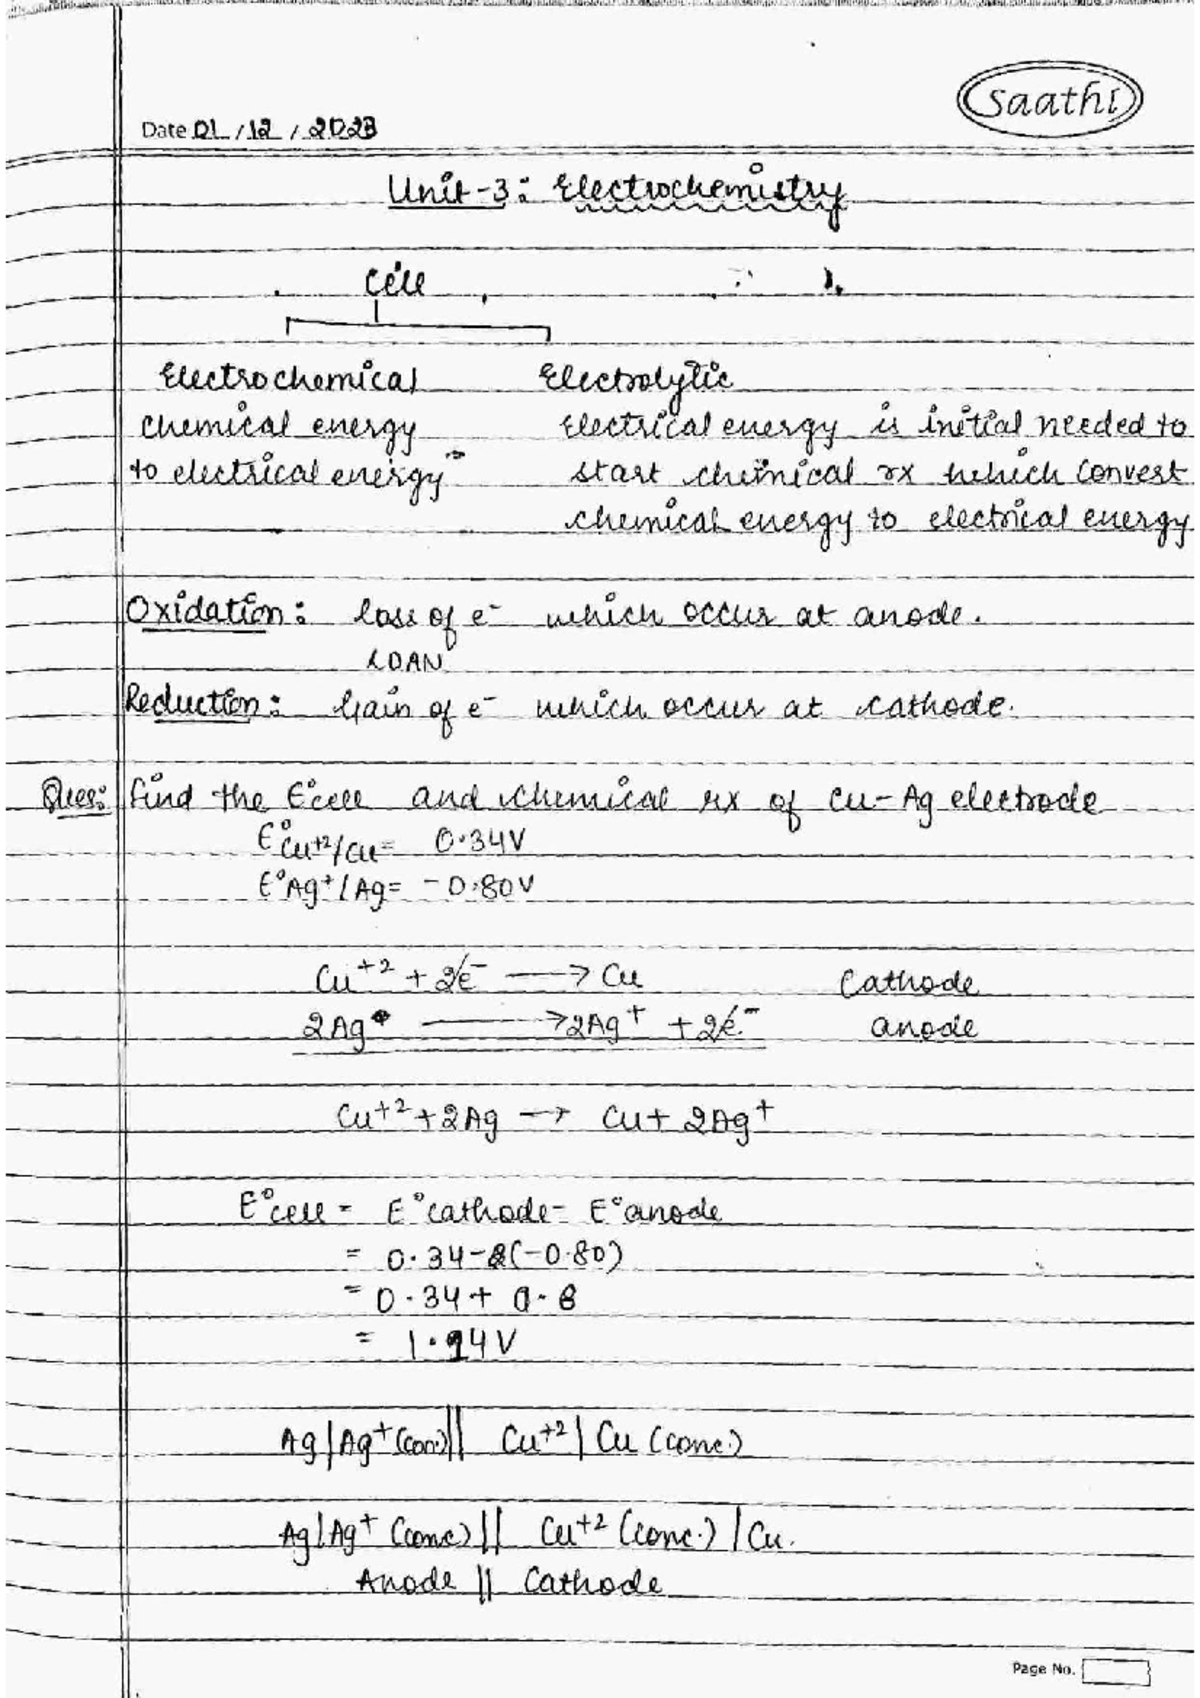 Saathi
Date 01 / 12 / 2023
Unit-3: Electrochemistry
Cell
Electrochemical Electrolytic
chemical energy Electrical energy is initial needed to
to electrical energy start chemical rx which convert
chemical energy to electrical energy
Oxidation: loss of e⁻ which occur at anode.
LOAN
Reduction: Gain of e⁻ which occur at cathode.
Ques: Find the E°cell and chemical rx of Cu-Ag electrode
E°Cu⁺²/Cu = 0.34V
E°Ag⁺/Ag = -0.80V
Cu⁺² + 2e⁻ → Cu Cathode
2Ag → 2Ag⁺ + 2e⁻ anode
Cu⁺² + 2Ag → Cu + 2Ag⁺
E°cell = E°cathode - E°anode
= 0.34-(-0.80)
= 0.34 + 0.8
= 1.14V
Ag|Ag⁺(con.)|| Cu⁺²|Cu (conc.)
Ag|Ag⁺ (conc)|| Cu⁺² (conc.) |Cu.
Anode || Cathode
Page No.